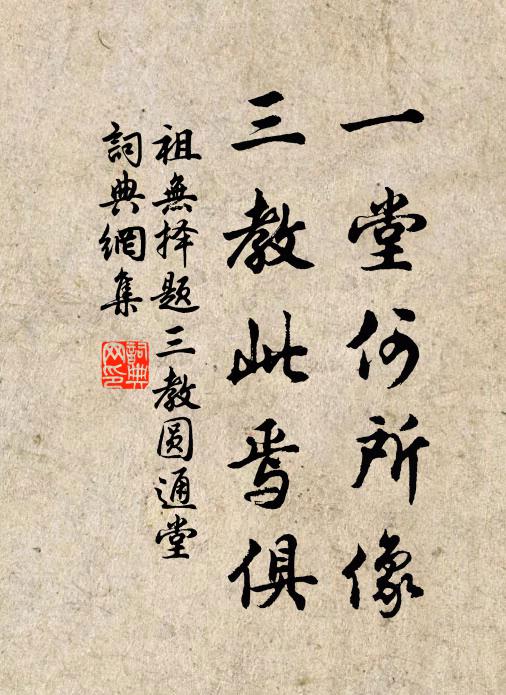 一堂何所像
三教此焉俱
祖無择题三教圆通堂
詞典網集
詞典网印